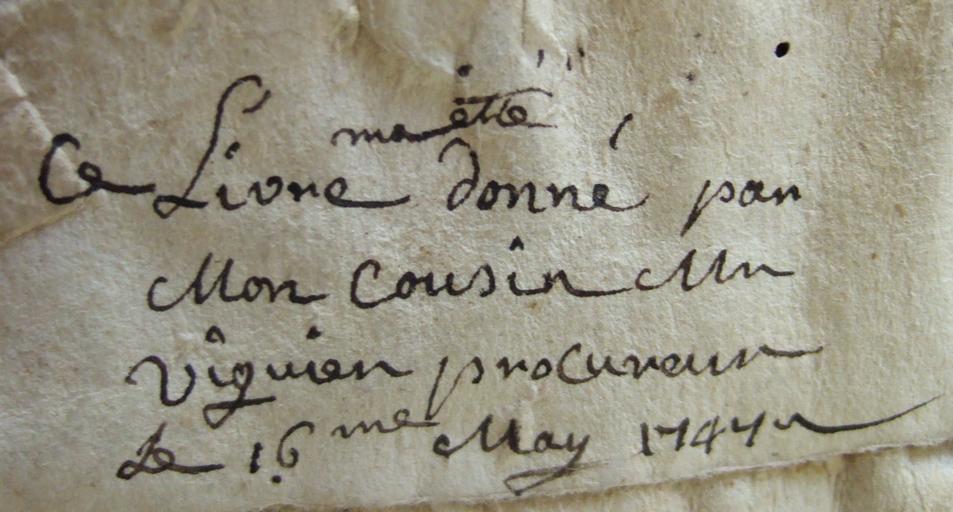 ma etté
Ce Livre donné par
Mon Cousin Mr
Viguier procureur
Le 16.me May 1747